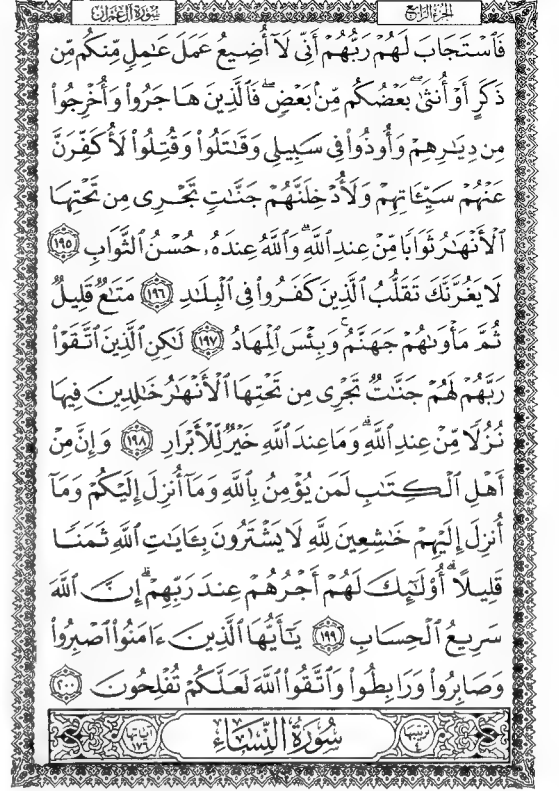 الجزء الرابع
سورة آل عمران
فَٱسْتَجَابَ لَهُمْ رَبُّهُمْ أَنِّى لَآ أُضِيعُ عَمَلَ عَٰمِلٍ مِّنكُم مِّن
ذَكَرٍ أَوْ أُنثَىٰ ۖ بَعْضُكُم مِّنۢ بَعْضٍ ۖ فَٱلَّذِينَ هَاجَرُوا۟ وَأُخْرِجُوا۟
مِن دِيَٰرِهِمْ وَأُوذُوا۟ فِى سَبِيلِى وَقَٰتَلُوا۟ وَقُتِلُوا۟ لَأُكَفِّرَنَّ
عَنْهُمْ سَيِّـَٔاتِهِمْ وَلَأُدْخِلَنَّهُمْ جَنَّٰتٍ تَجْرِى مِن تَحْتِهَا
ٱلْأَنْهَٰرُ ثَوَابًا مِّنْ عِندِ ٱللَّهِ ۗ وَٱللَّهُ عِندَهُۥ حُسْنُ ٱلثَّوَابِ ١٩٥
لَا يَغُرَّنَّكَ تَقَلُّبُ ٱلَّذِينَ كَفَرُوا۟ فِى ٱلْبِلَٰدِ ١٩٦ مَتَٰعٌ قَلِيلٌ
ثُمَّ مَأْوَىٰهُمْ جَهَنَّمُ ۚ وَبِئْسَ ٱلْمِهَادُ ١٩٧ لَٰكِنِ ٱلَّذِينَ ٱتَّقَوْا۟
رَبَّهُمْ لَهُمْ جَنَّٰتٌ تَجْرِى مِن تَحْتِهَا ٱلْأَنْهَٰرُ خَٰلِدِينَ فِيهَا
نُزُلًا مِّنْ عِندِ ٱللَّهِ ۗ وَمَا عِندَ ٱللَّهِ خَيْرٌ لِّلْأَبْرَارِ ١٩٨ وَإِنَّ مِنْ
أَهْلِ ٱلْكِتَٰبِ لَمَن يُؤْمِنُ بِٱللَّهِ وَمَآ أُنزِلَ إِلَيْكُمْ وَمَآ
أُنزِلَ إِلَيْهِمْ خَٰشِعِينَ لِلَّهِ لَا يَشْتَرُونَ بِـَٔايَٰتِ ٱللَّهِ ثَمَنًا
قَلِيلًا ۗ أُو۟لَٰٓئِكَ لَهُمْ أَجْرُهُمْ عِندَ رَبِّهِمْ ۗ إِنَّ ٱللَّهَ
سَرِيعُ ٱلْحِسَابِ ١٩٩ يَٰٓأَيُّهَا ٱلَّذِينَ ءَامَنُوا۟ ٱصْبِرُوا۟
وَصَابِرُوا۟ وَرَابِطُوا۟ وَٱتَّقُوا۟ ٱللَّهَ لَعَلَّكُمْ تُفْلِحُونَ ٢٠٠
ترتيبها ٤
سُورَةُ النِّسَاءِ
آياتها ١٧٦